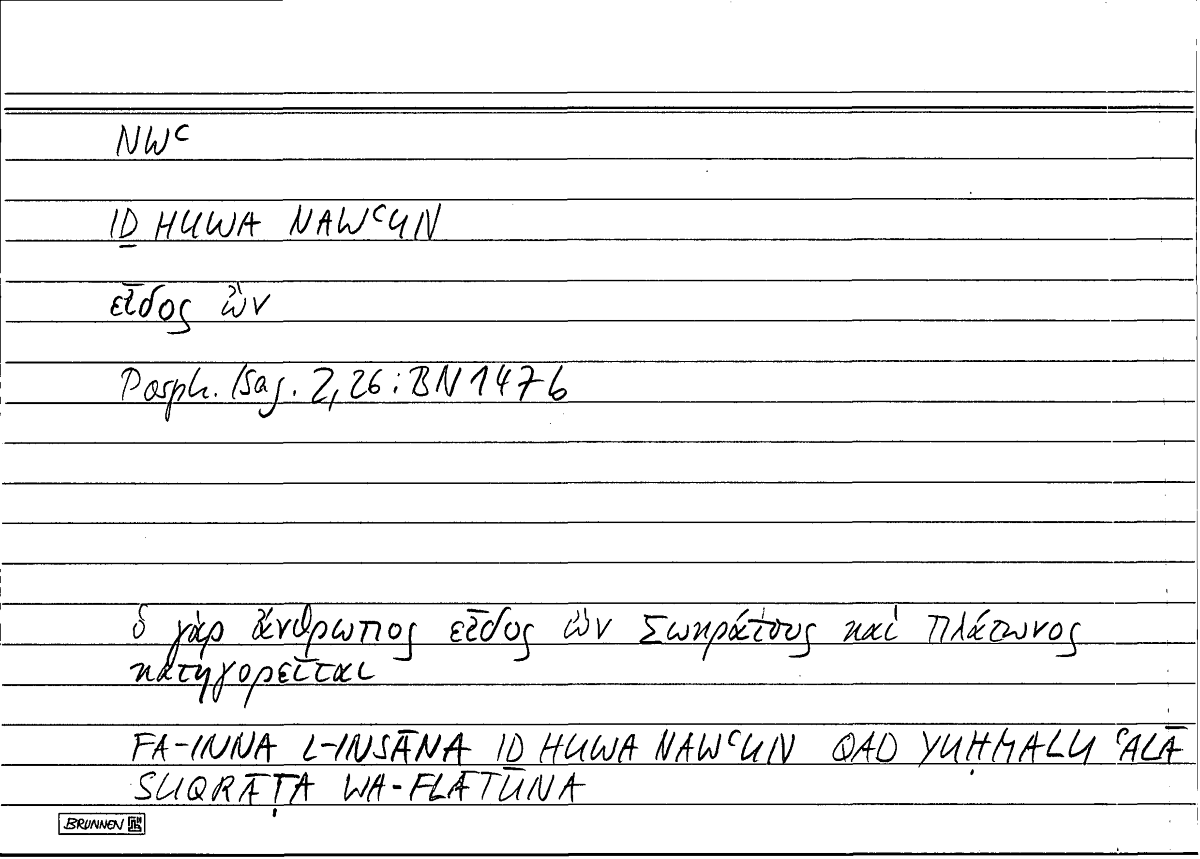 NWᶜ
IḎ HUWA NAWᶜUN
εἶδος ὢν
Porph. Isag. 2,26: BN 147b
ὁ γὰρ ἄνθρωπος εἶδος ὢν Σωκράτους καὶ Πλάτωνος
κατηγορεῖται
FA-INNA L-INSĀNA ID HUWA NAWᶜUN QAD YUḤMALU ᶜALĀ
SUQRĀṬA WA-FLĀṬŪNA
BRUNNEN